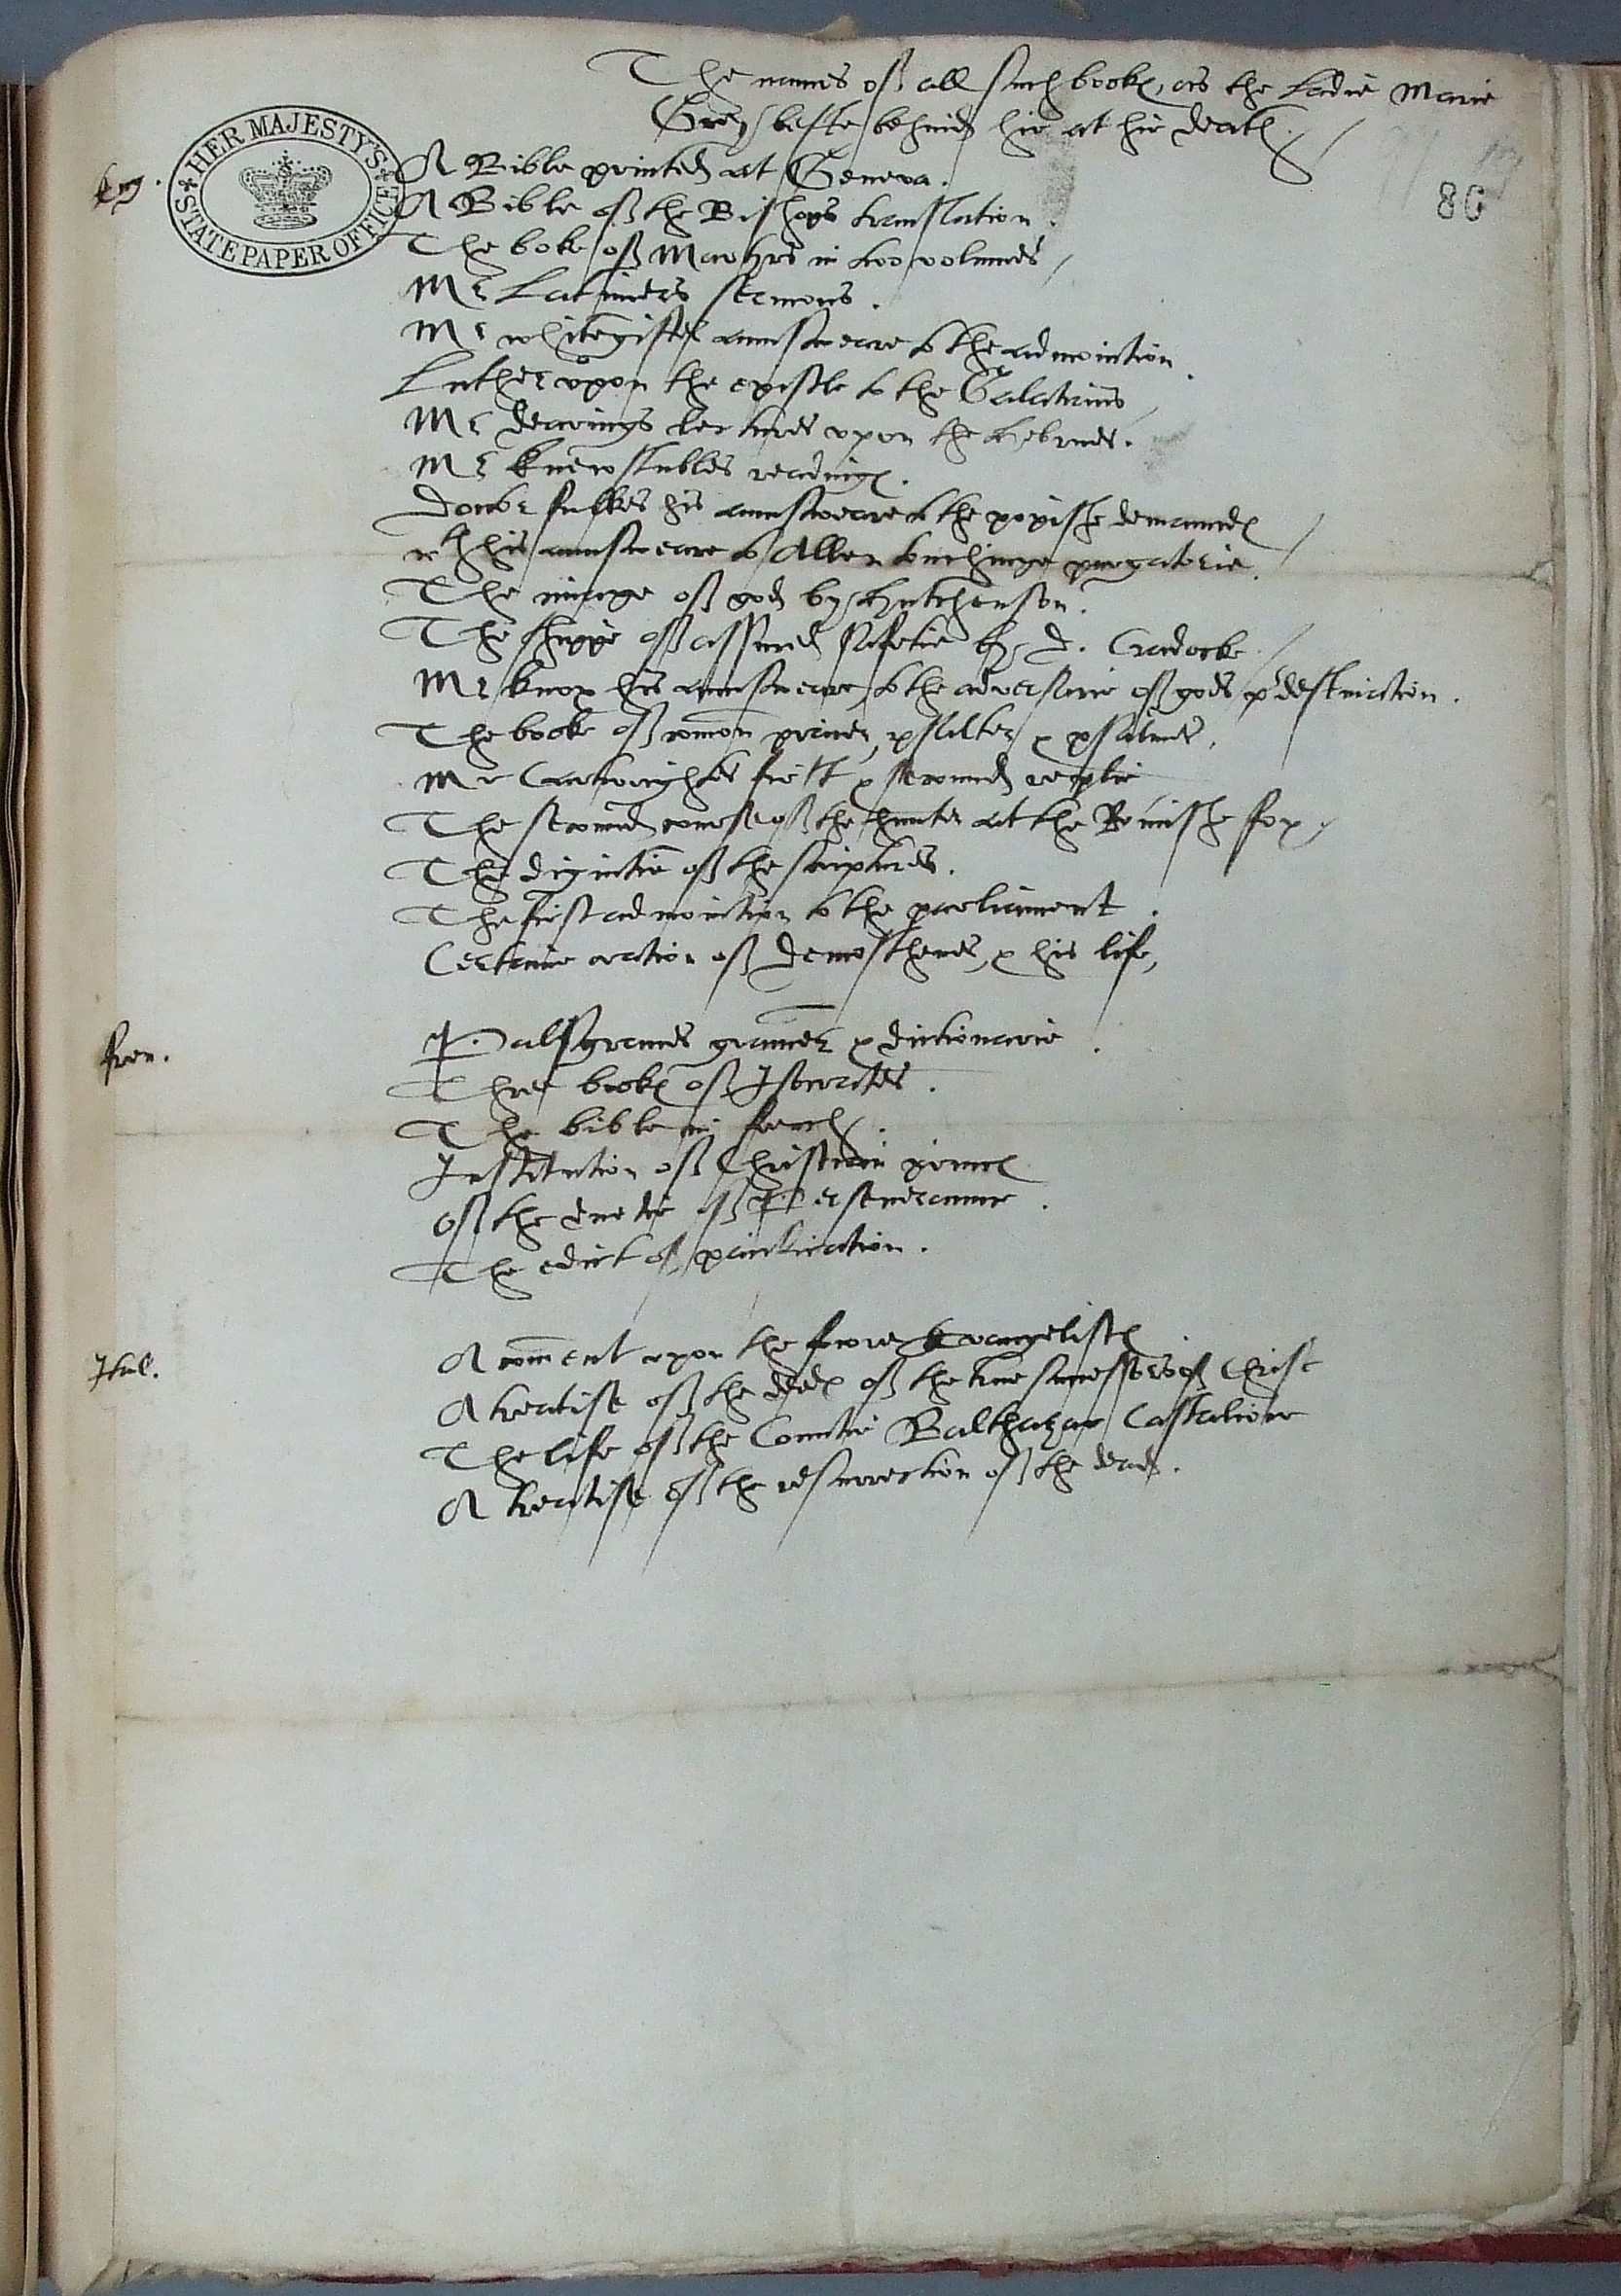 The names of all such bookes, as the Ladie Marie
Grey lefte behind hir at hir death.
86
HER MAJESTY'S STATE PAPER OFFICE
Eng.
A Bible printed at Geneva.
A Bible of the Bishops translation.
The boke of Martyrs in two volumes
Mr Latimers sermons.
Mr Whitegiftes aunsweare to the admonition.
Luther upon the epistle to the Galatians
Mr Dearings lectures upon the hebrues.
Mr Knewstubbes readinges.
Doctor fulkes his aunsweare to the popishe demaundes
wth his aunsweare to Allen touchinge purgatorie.
The image of god by Hutchenson.
The shippe of assured safetie by D. Cradocke
Mr Knox his aunsweare to the adversarie of gods predestination.
The booke of comon praier, psalter & psalmes.
Mr Cartwrightes first & seconnd replie
The seconnd course of the hunter at the Romishe fox
The dignitie of the scriptures.
The first admonition to the parliament.
Certaine oration of Demosthenes, & his life,
fren.
Palsgraves gramer & dictionarie.
Three bookes of Isocrates.
The bible in french.
Institution of Christian princes
Of the unitie of Perseveraunce.
The edict of pacification.
Ital.
A coment upon the fower Evangelistes
A treatise of the deedes of the true successors of Christ
The life of the Countie Balthazar Castalione
A treatise of the resurrection of the dead.